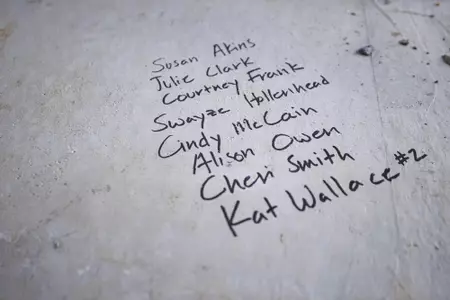 Susan Akins
Julie Clark
Courtney Frank
Swayze Hollenhead
Cindy McCain
Alison Owen
Cheri Smith
Kat Wallace #2